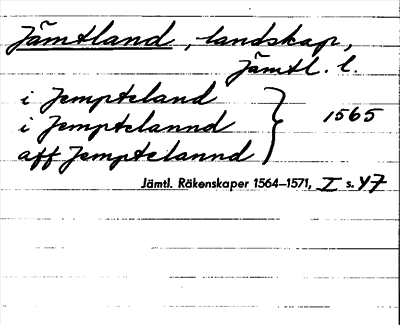 Jämtland, landskap,
Jämtl. l.
i Jempteland
i Jemptelannd } 1565
aff Jemptelannd
Jämtl. Räkenskaper 1564–1571, I s. 47